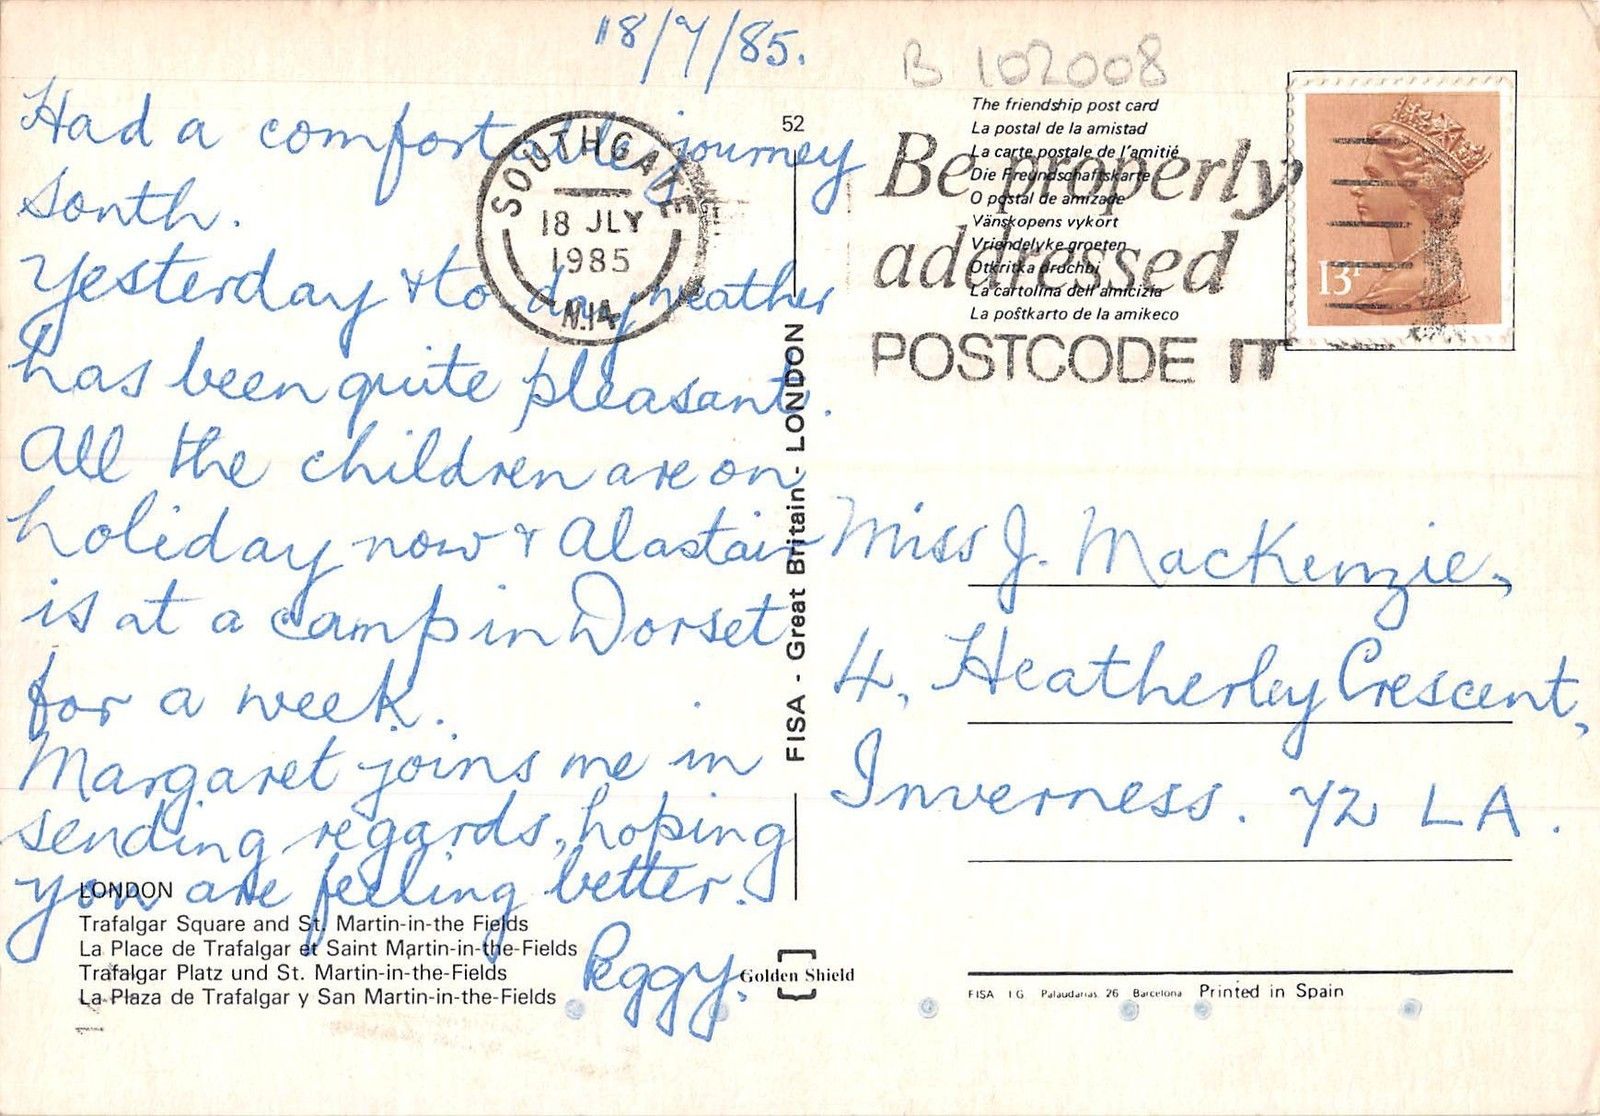 18/7/85.
Had a comfortable journey
South.
Yesterday & to day weather
has been quite pleasant.
All the children are on
holiday now & Alastair
is at a camp in Dorset
for a week.
Margaret joins me in
sending regards, hoping
you are feeling better.
Peggy.
LONDON
Trafalgar Square and St. Martin-in-the Fields
La Place de Trafalgar et Saint Martin-in-the-Fields
Trafalgar Platz und St. Martin-in-the-Fields
La Plaza de Trafalgar y San Martin-in-the-Fields
SOUTHGATE
18 JLY
1985
N.14
52
FISA - Great Britain - LONDON
Golden Shield
B 102008
The friendship post card
La postal de la amistad
La carte postale de l'amitié
Die Freundschaftskarte
O postal de amizade
Vänskopens vykort
Vriendelyke groeten
Otkritka druchbi
La cartolina dell'amicizia
La poŝtkarto de la amikeco
Be properly
addressed
POSTCODE IT
13P
Miss J. MacKenzie,
4, Heatherley Crescent,
Inverness. Y2 LA.
FISA I G Palaudarias 26 Barcelona Printed in Spain